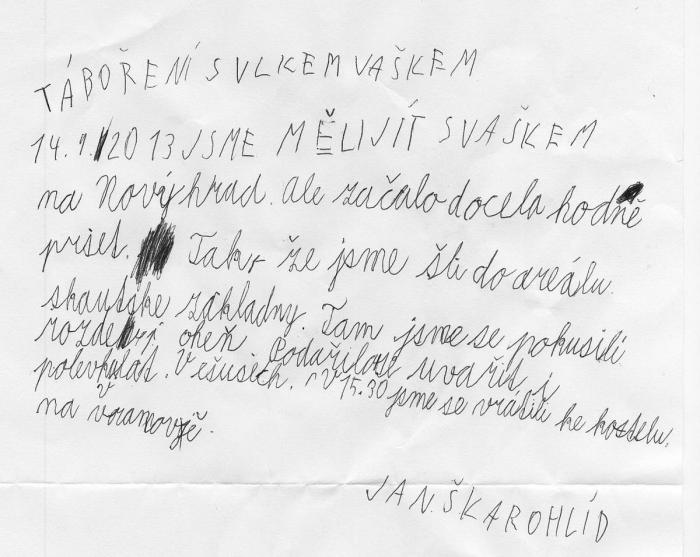 TÁBOŘENÍ S VLKEM VAŠKEM
14.9.2013 JSME MĚLI JÍT S VAŠKEM
na Nový hrad. ale začalo docela hodně
pršet. Tak že jsme šli do areálu
skautske základny. Tam jsme se pokusili
oheň Podařilo se uvařit i
polevku. V ešusech. V 15.30 jsme se vrátili ke kostelu.
na
JAN ŠKAROHLÍD